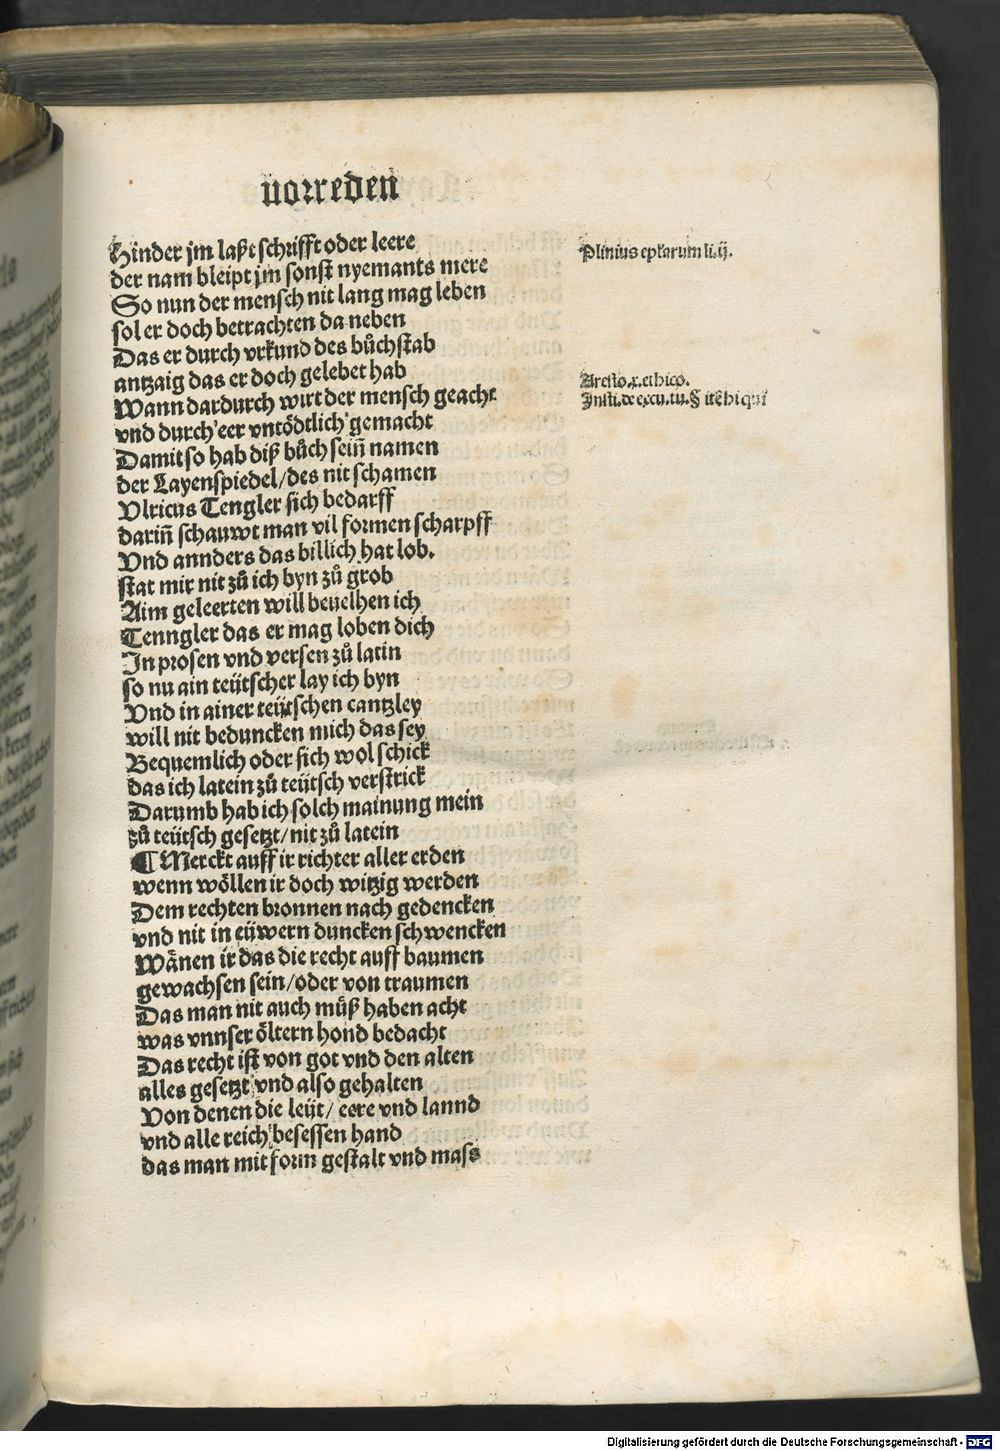 uorreden
Hinder jm laßt schrifft oder leere
der nam bleipt jm sonst nyemants mere
So nun der mensch nit lang mag leben
sol er doch betrachten da neben
Das er durch vrkund des bůchstab
antzaig das er doch gelebet hab
Wann dardurch wirt der mensch geacht
vnd durch eer vntödtlich gemacht
Damit so hab diß bůch sein̄ namen
der Layenspiedel/des nit schamen
Vlricus Tengler sich bedarff
darin̄ schauwt man vil formen scharpff
Vnd annders das billich hat lob.
stat mir nit zů ich byn zů grob
Aim geleerten will beuelhen ich
Tenngler das er mag loben dich
In prosen vnd versen zů latin
so nu ain teütscher lay ich byn
Vnd in ainer teütschen cantzley
will nit beduncken mich das sey
Bequemlich oder sich wol schick
das ich latein zů teütsch verstrick
Darumb hab ich solch mainung mein
zů teütsch gesetzt/nit zů latein
¶ Merckt auff ir richter aller erden
wenn wöllen ir doch witzig werden
Dem rechten bronnen nach gedencken
vnd nit in eüwern duncken schwencken
Wänen ir das die recht auff baumen
gewachsen sein/oder von traumen
Das man nit auch müß haben acht
was vnnser öltern hond bedacht
Das recht ist von got vnd den alten
alles gesetzt vnd also gehalten
Von denen die leüt/ eere vnd lannd
vnd alle reich besessen hand
das man mit form gestalt vnd mass
Plinius ep̄larum li. ij.
Aresto. x. ethico.
Insti. de excu. tu. § itē hi qui
Digitalisierung gefördert durch die Deutsche Forschungsgemeinschaft - DFG